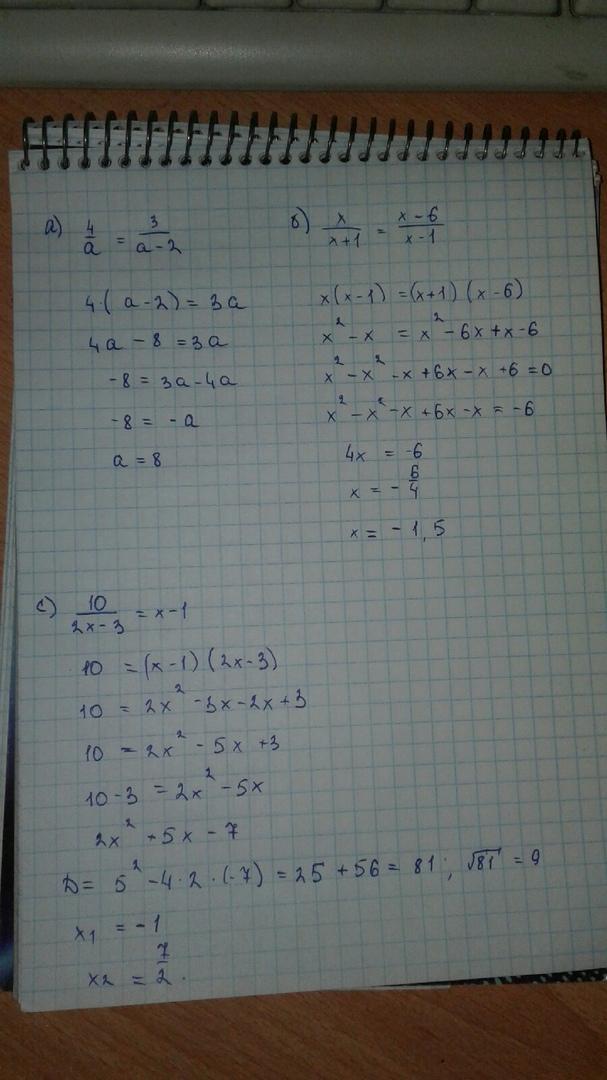 а) 4/a = 3/(a-2)
4·(a-2) = 3a
4a - 8 = 3a
-8 = 3a-4a
-8 = -a
a = 8
б) x/(x+1) = (x-6)/(x-1)
x(x-1) = (x+1)(x-6)
x² - x = x² - 6x + x - 6
x² - x² - x + 6x - x + 6 = 0
x² - x² - x + 6x - x = -6
4x = -6
x = - 6/4
x = - 1,5
с) 10/(2x-3) = x-1
10 = (x-1)(2x-3)
10 = 2x² - 3x - 2x + 3
10 = 2x² - 5x + 3
10-3 = 2x² - 5x
2x² + 5x - 7
D = 5² - 4·2·(-7) = 25 + 56 = 81; √81 = 9
x1 = -1
x2 = 7/2.